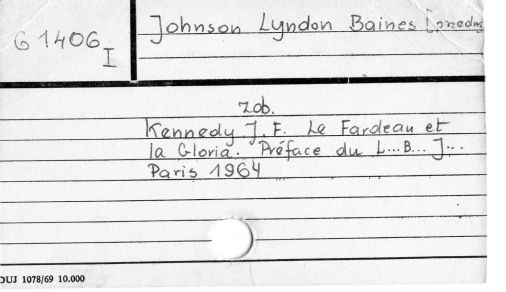 G 1406 I
Johnson Lyndon Baines [przedm
zob.
Kennedy J. F. Le Fardeau et
la Gloria. Préface du L...B... J...
Paris 1964
DUJ 1078/69 10.000